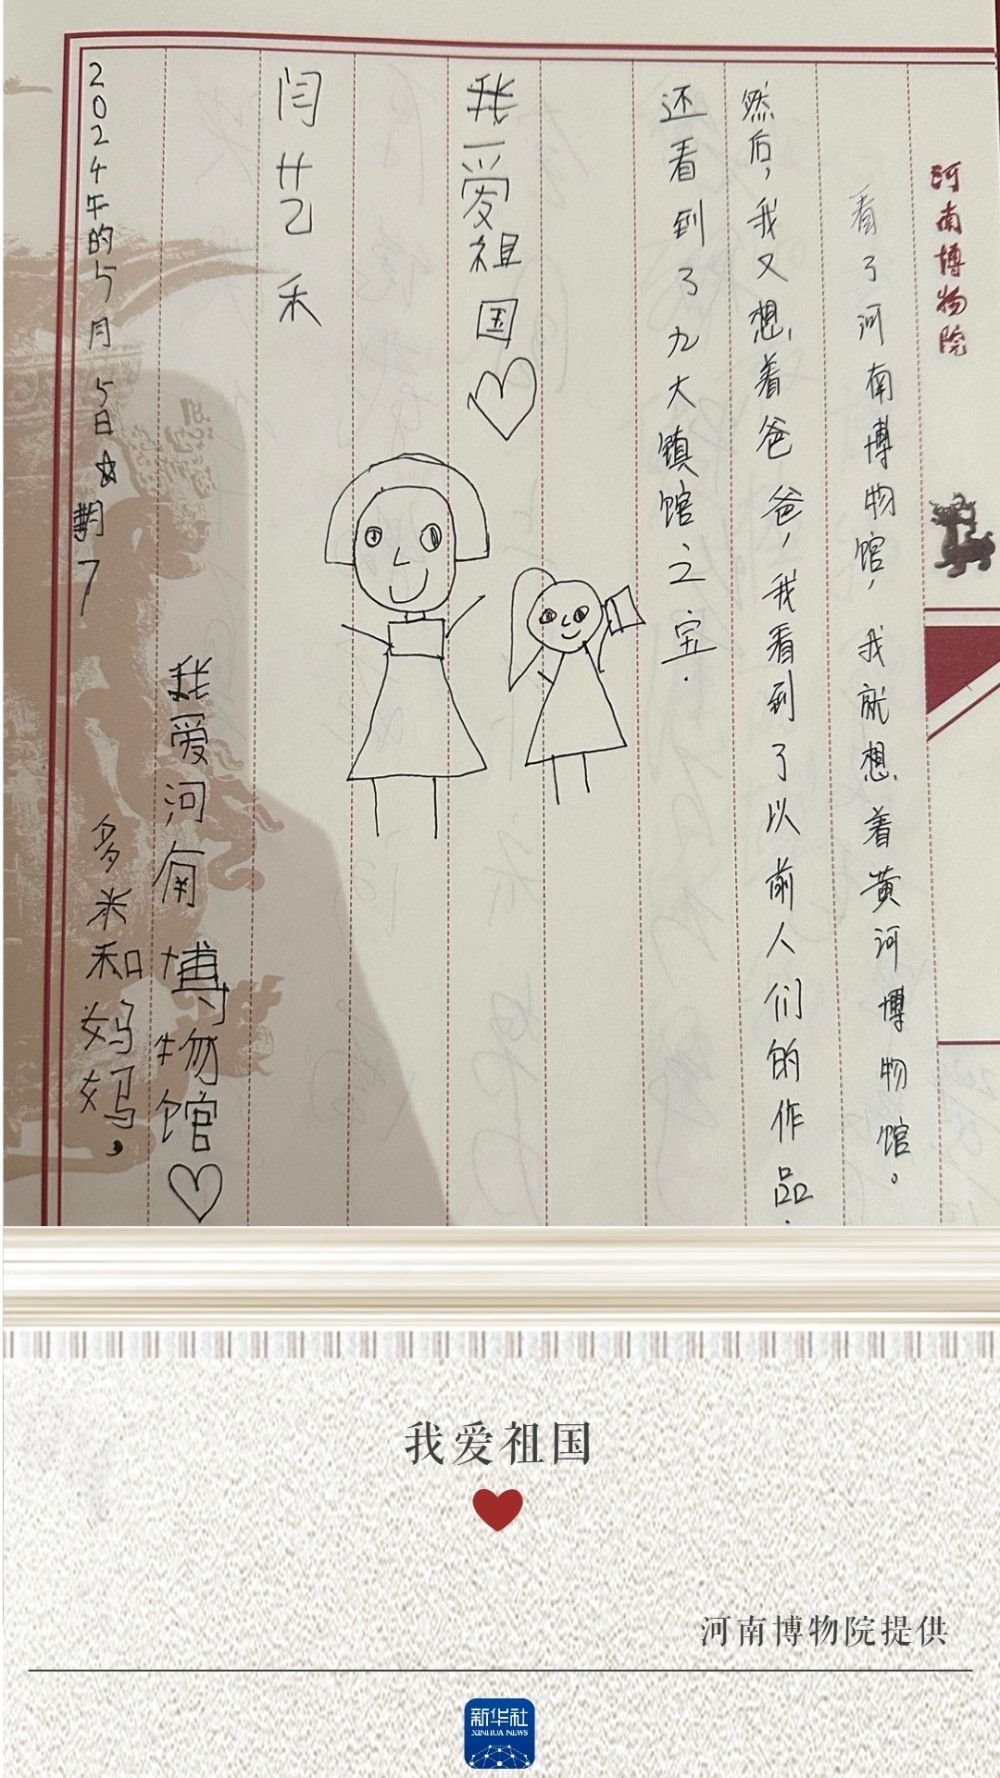 河南博物院
看了河南博物馆，我就想着黄河博物馆。
然后，我又想着爸爸，我看到了以前人们的作品.
还看到了九大镇馆之宝.
我爱祖国♡
闫艺禾
我爱河南博物馆♡
2024年的5月5日☆期7
多米和妈妈，
我爱祖国
河南博物院提供
新华社
XINHUA NEWS